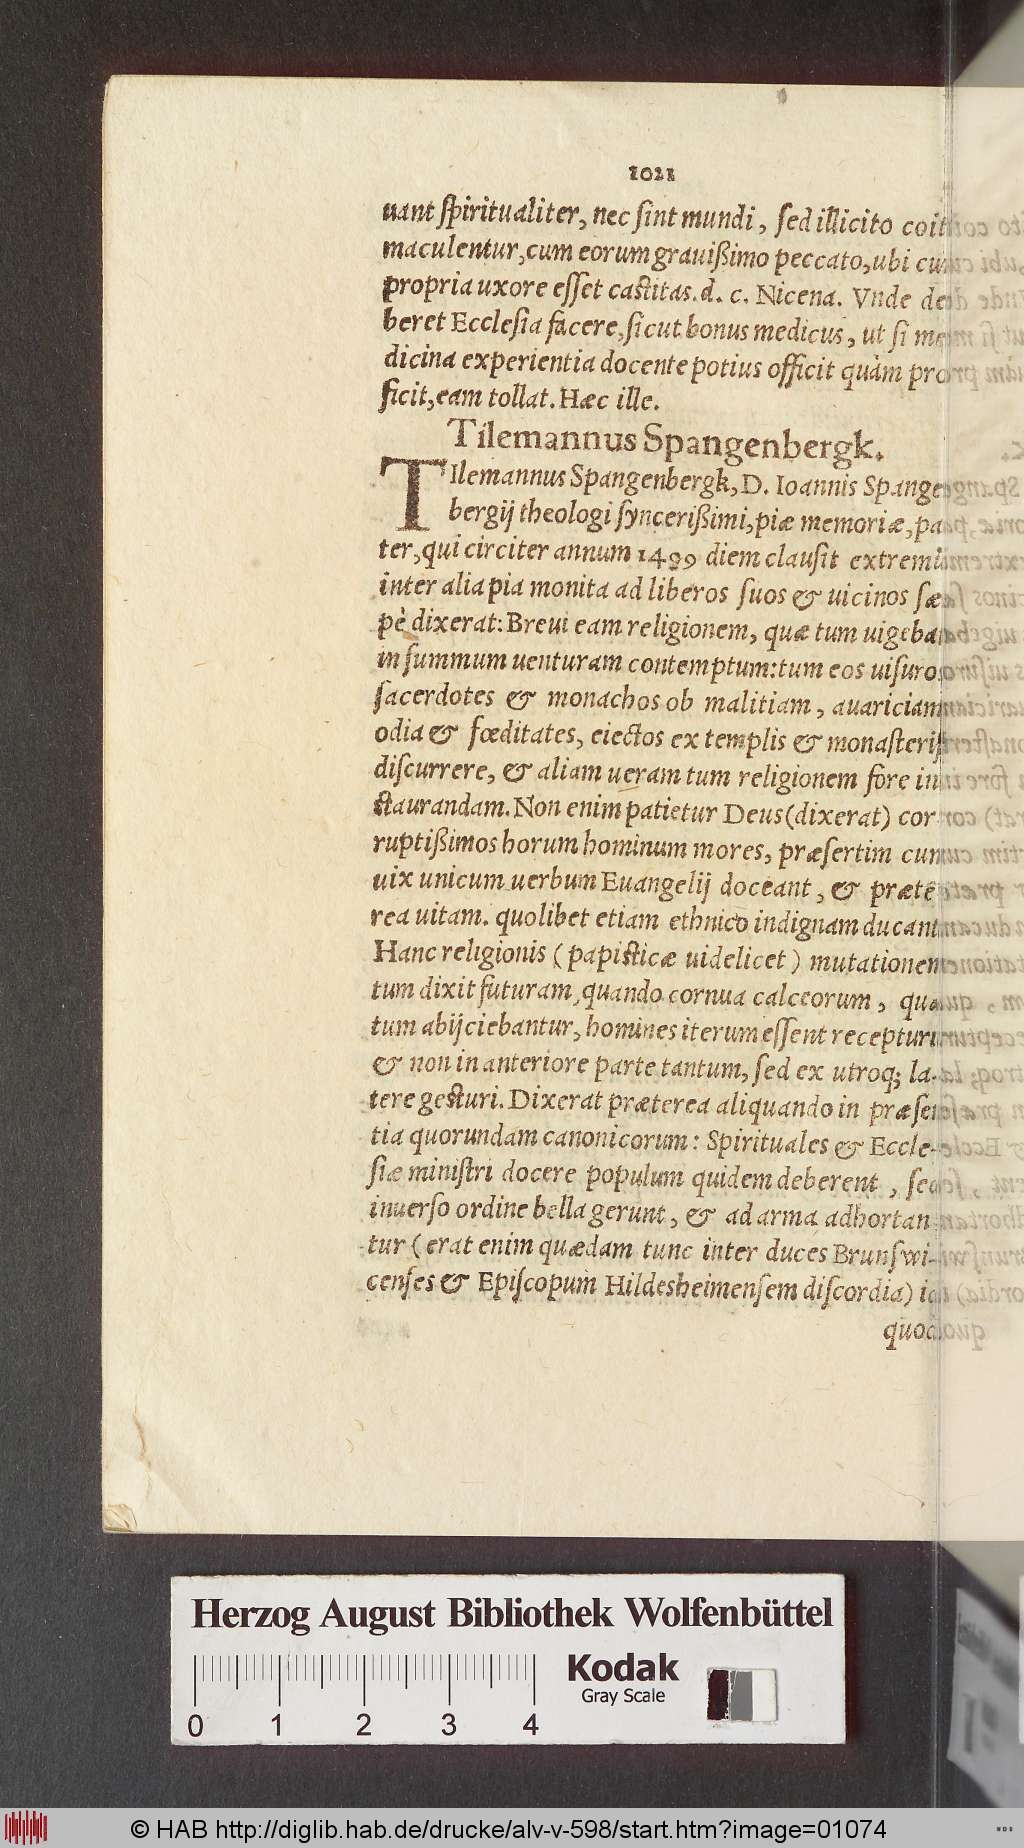 1021
uant spiritualiter, nec sint mundi, sed illicito coit
maculentur, cum eorum grauißimo peccato, ubi cum
propria uxore esset castitas. d. c. Nicena. Vnde de
beret Ecclesia facere, sicut bonus medicus, ut si me
dicina experientia docente potius officit quàm pro
ficit, eam tollat. Hæc ille.
Tilemannus Spangenbergk.
TIlemannus Spangenbergk, D. Ioannis Spange
bergij theologi syncerißimi, piæ memoriæ, pa
ter, qui circiter annum 1499 diem clausit extremũ
inter alia pia monita ad liberos suos & uicinos sæ
pè dixerat: Breui eam religionem, quæ tum uigeba
in summum uenturam contemptum: tum eos uisuros
sacerdotes & monachos ob malitiam, auariciam
odia & fœditates, eiectos ex templis & monasterijs
discurrere, & aliam ueram tum religionem fore in
staurandam. Non enim patietur Deus (dixerat) cor
ruptißimos horum hominum mores, præsertim cum
uix unicum uerbum Euangelij doceant, & præte
rea uitam. quolibet etiam ethnico indignam ducant
Hanc religionis (papisticæ uidelicet) mutationem
tum dixit futuram, quando cornua calceorum, quæ
tum abijciebantur, homines iterum essent recepturi
& non in anteriore parte tantum, sed ex utroq; la-
tere gesturi. Dixerat præterea aliquando in præsen
tia quorundam canonicorum: Spirituales & Eccle-
siæ ministri docere populum quidem deberent, sed
inuerso ordine bella gerunt, & ad arma adhortan
tur (erat enim quædam tunc inter duces Brunswi-
censes & Episcopum Hildesheimensem discordia) id
quod
Herzog August Bibliothek Wolfenbüttel
Kodak
Gray Scale
0 1 2 3 4
© HAB http://diglib.hab.de/drucke/alv-v-598/start.htm?image=01074